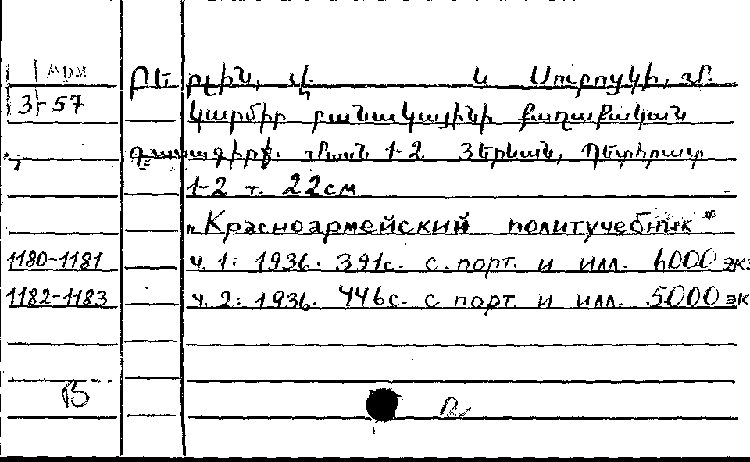 Арм
3-57
Բերլին, Լ. և Սուրոպկի,
Կարմիր բանակայինի քաղաքական
դասագիրք. մաս 1-2 Յերևան, Պետհրատ
1-2 т. 22см
„Красноармейский политучебник“
1180-1181 ч. 1: 1936. 391с. с. порт. и илл. 6000 экз
1182-1183 ч. 2: 1936. 446с. с порт. и илл. 5000 эк
В